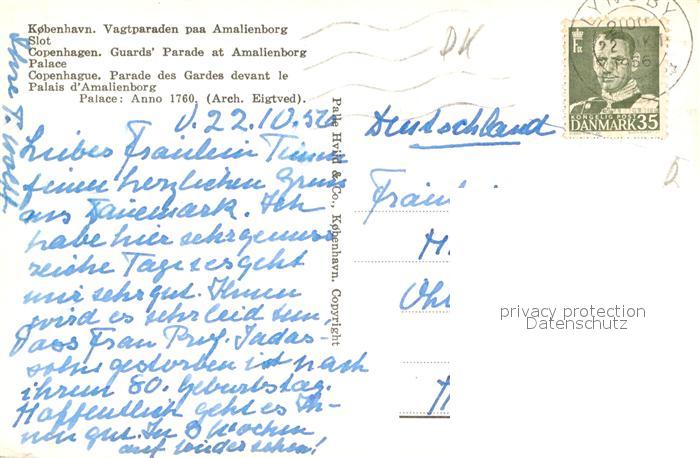 København. Vagtparaden paa Amalienborg
Slot
Copenhagen. Guards' Parade at Amalienborg
Palace
Copenhague. Parade des Gardes devant le
Palais d'Amalienborg
Palace: Anno 1760. (Arch. Eigtved).
Palle Hvid & Co., København. Copyright
22.10.56
Liebes Fräulein
einen herzlichen Gruss
aus Dänemark. Ich
habe hier sehr genuss
reiche Tage es geht
mir sehr gut. Ihnen
wird es sehr leid tun,
dass Frau Prof. Jadas-
sohn gestorben ist nach
ihrem 80. Geburtstag.
Hoffentlich geht es Ih-
nen gut. In 3 Wochen
auf Wiedersehen!
Ihre T.
DK
LYNGBY
KONGELIG POST
DANMARK 35
Deutschland
Fräul
privacy protection
Datenschutz